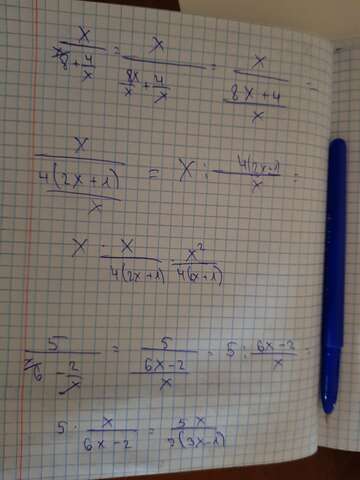 x/(8 + 4/x) = x/(8x/x + 4/x) = x/((8x + 4)/x) =
x/(4(2x + 1)/x) = x : 4(2x+1)/x =
x · x/4(2x+1) = x²/4(6x+1)
5/(6 - 2/x) = 5/((6x - 2)/x) = 5 : (6x - 2)/x
5 · x/(6x - 2) = 5x/2(3x-1)